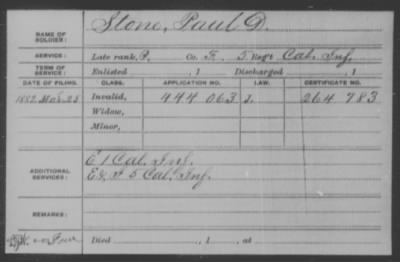 NAME OF SOLDIER: Stone, Paul D.
SERVICE: Late rank, P, Co. F, 5 Reg't Cal. Inf.
TERM OF SERVICE: Enlisted , 1 Discharged , 1
DATE OF FILING. CLASS. APPLICATION NO. LAW. CERTIFICATE NO.
1882 Mar. 25 Invalid, 444 063 264 783
Widow,
Minor,
ADDITIONAL SERVICES: E 1 Cal. Inf.
E & F 5 Cal. Inf.
REMARKS:
Died , 1 , at